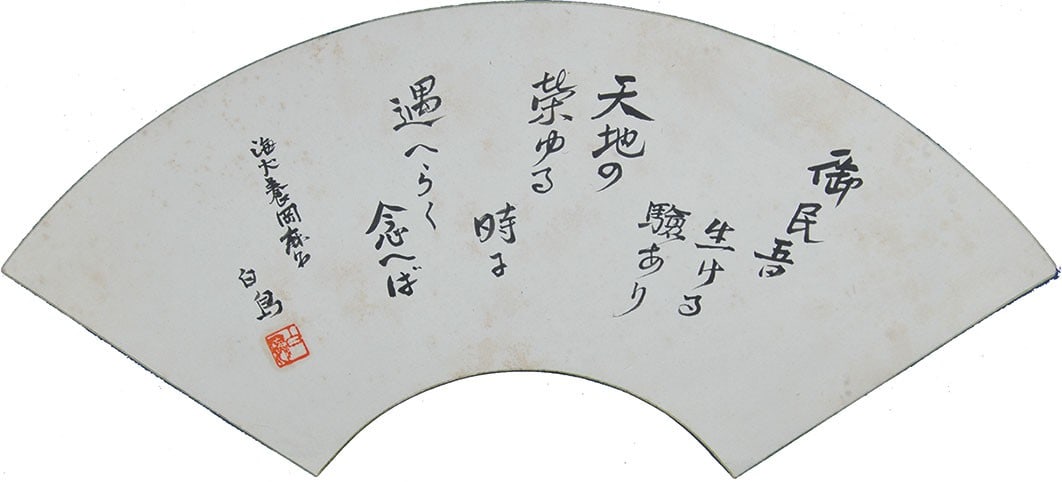 御民吾
生ける
驗あり
天地の
榮ゆる
時に
遇へらく
念へば
海犬養岡麻呂
白鳥